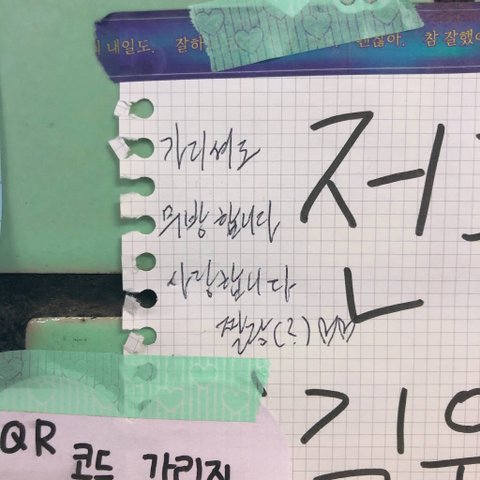 내일도. 잘하 괜찮아. 참 잘했
가디셔도
무방합니다
사랑합니다
찔랑(?)♡♡
전
김우
QR
코드 가리지